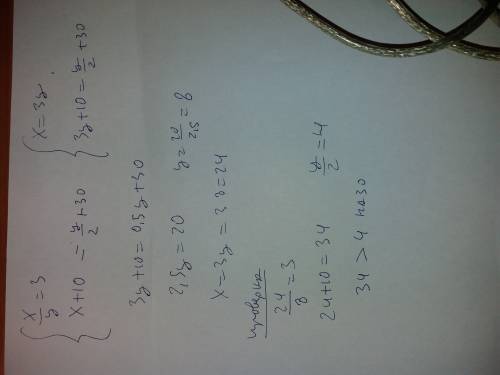 { x/y = 3
x + 10 = y/2 + 30
{ x = 3y.
3y + 10 = y/2 + 30
3y + 10 = 0,5y + 30
2,5y = 20 y = 20/2,5 = 8
x = 3y = 3·8 = 24
проверка
24/8 = 3
24 + 10 = 34 y/2 = 4
34 > 4 на 30